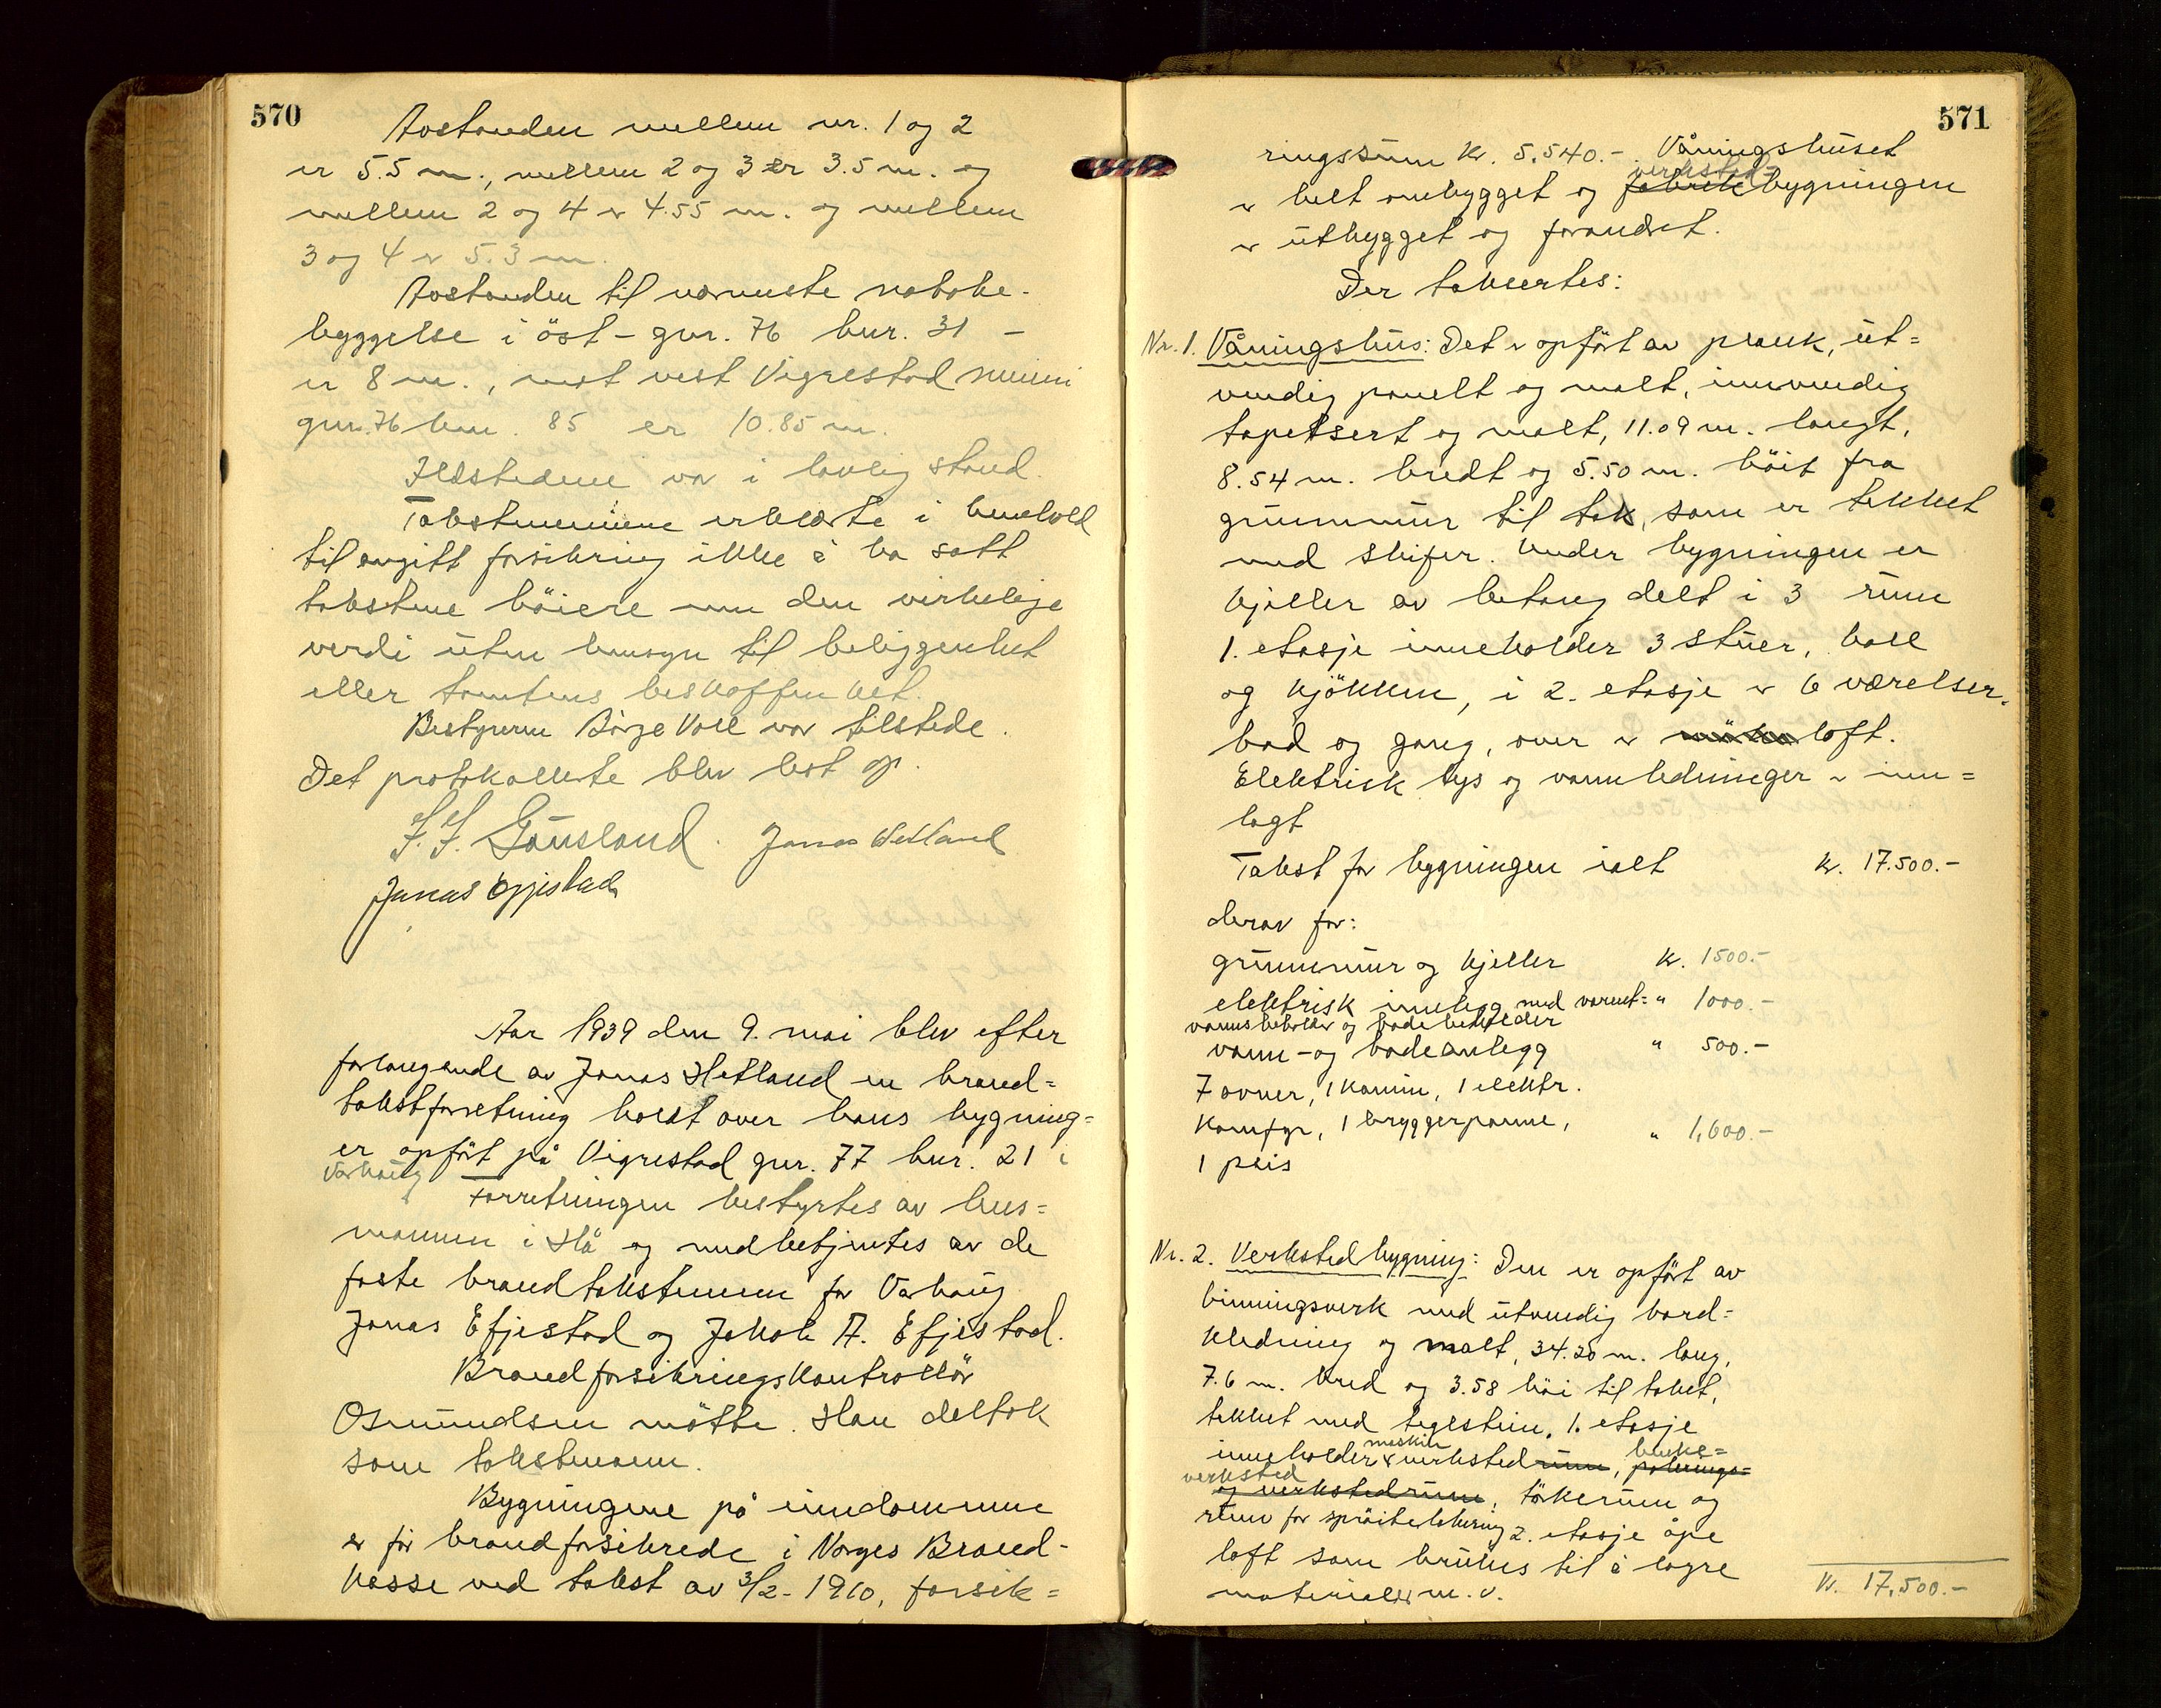 570
Avstanden mellem nr. 1 og 2
er 5.5 m., mellem 2 og 3 er 3.5 m. og
mellem 2 og 4 er 4.55 m. og mellem
3 og 4 er 5.3 m.
Avstanden til nærmeste nabobe-
byggelse i öst - gnr. 76 bnr. 31 -
er 8 m., mot vest Vigrestad
gnr. 76 bnr. 85 er 10.85 m.
Ildstedene var i lovlig stand.
Takstmennene erklærte i henhold
til avgitt forsikring ikke å ha satt
takstene höiere enn den virkelige
verdi uten hensyn til beliggenhet
eller tomtens beskaffenhet.
Bestyreren Börge Voll var tilstede.
Det protokollerte blev lest op.
Jonas Hetland
Jonas Efjestad
Aar 1939 den 9. mai blev efter
forlangende av Jonas Hetland en brand=
takstforretning holdt over hans bygning=
er opfört på Vigrestad gnr. 77 bnr. 21 i
Varhaug
Forretningen bestyrtes av lens=
mannen i Hå og medbetjentes av de
faste brandtakstmenn for Varhaug
Jonas Efjestad og Jakob A. Efjestad.
Brandforsikringskontrollör
Osmundsen mötte. Han deltok
som takstmann.
Bygningene på eiendommene
er för brandforsikrede i Norges Brand-
kasse ved takst av 3/2-1910, forsik=
571
ringssum kr. 5.540.-. Våningshuset
er helt ombygget og verksted= fabrikkbygningen
er utbygget og forandret.
Der takseertes:
Nr. 1. Våningshus: Det er opfört av plank, ut=
vendig panelt og malt, innvendig
tapetsert og malt, 11.09 m. langt,
8.54 m. bredt og 5.50 m. höit fra
grunnmur til tak, som er tekket
med skifer. Under bygningen er
kjeller av betong delt i 3 rum
1. etasje inneholder 3 stuer, hall
og kjökken, i 2. etasje er 6 værelser,
bad og gang, over er loft.
Elektrisk lys og vannledninger er inn=
lagt
Takst for bygningen ialt kr. 17.500.-
derav for:
grunnmur og kjeller kr. 1500.-
elektrisk innlegg med varmt= " 1000.-
vannsbeholder og badebeholder
vann - og badeanlegg " 500.-
7 ovner, 1 kamin, 1 elektr.
komfyr, 1 bryggerpanne, " 1,600.-
1 peis
Nr. 2. Verkstedbygning: Den er opfört av
binningsverk med utvendig bord=
kledning og malt, 34.20 m. lang,
7.6 m. bred og 3.58 höi til taket,
tekket med teglstein. 1. etasje
inneholder maskin verkstedrum, benke= polerings=
verksted og verkstedrum, törkerum og
rum for spröitelakering 2. etasje åpe
loft som brukes til å lagre
materialer m. v.
kr. 17,500.-